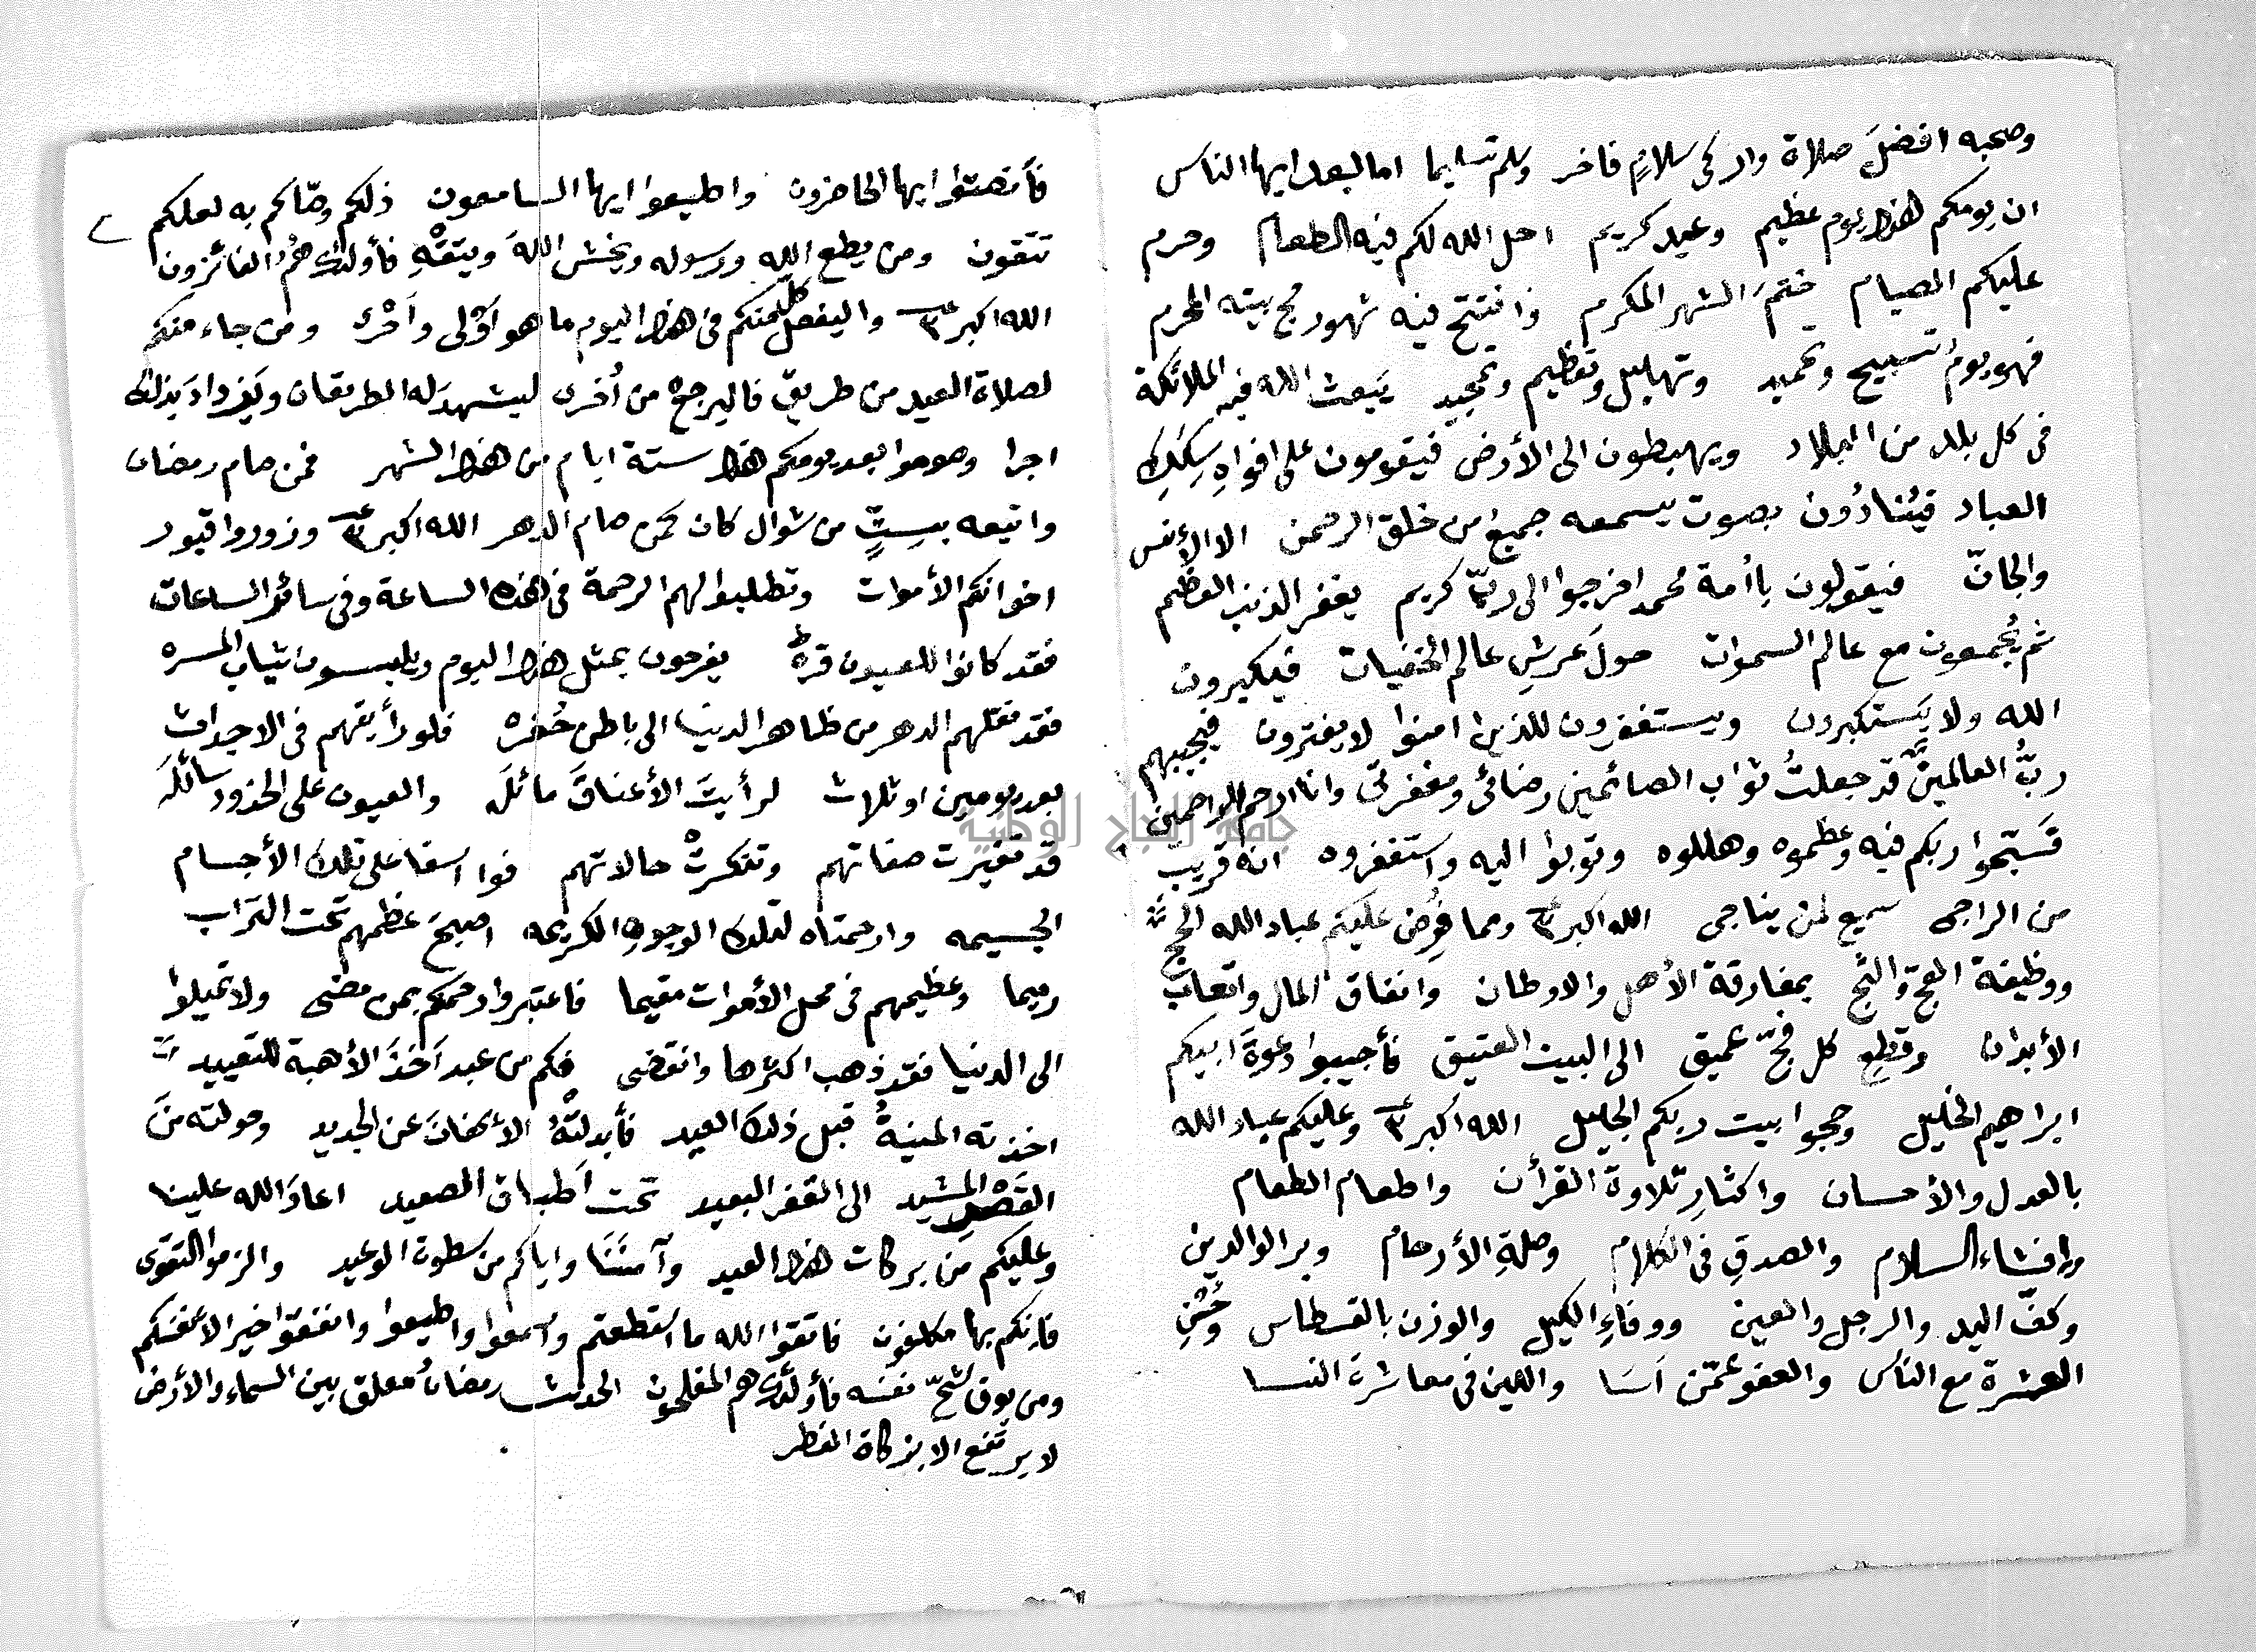 وصحبه افضلَ صلاة وازكى سلامٍ فاخر وسلم تسليما اما بعد ايها الناس
ان يومكم هذا يوم عظيم وعيد كريم احل الله لكم فيه الطعام وحرم
عليكم الصيام ختمَ الشهر المكرم وافتتح فيه شهور حج بيته المحرم
فهو يومُ تسبيح وتحميد وتهليل وتعظيم وتمجيد يَبعث الله فيه الملائكة
فى كل بلد من البلاد ويهبطون الى الأرض فيقومون على افواهِ سِكَكِ
العباد فيُنادُون بصوت يسمعه جميع من خلق الرحمن الا الأنس
والجانّ فيقولون ياأمة محمد اخرجوا الى ربّ كريم يغفر الذنب العظيم
ثم يُجمعون مع عالم السموات حولَ عرشِ عالم الخفيات فيكبرون
الله ولا يَستكبرون ويستغفرون للذين امنوا لا يفترون فيجيبهم
ربُّ العالمين قد جعلتُ ثواب الصائمين رضائى ومغفرتى وانا ارحم الراحمين
فسَبّحوا ربكم فيه وعظموه وهللوه وتوبوا اليه واستغفروه انه قريب
من الراجى سميع لمن يناجى الله اكبر ٣ ومما فُرِض عليكم عباد الله الحج
ووظيفة العجّ والثجّ بمفارقة الأهل والاوطان وانفاق المال واتعاب
الأبدان وقطع كل فجّ عميق الى البيت العتيق فأجيبوا دعوةَ ابيكم
ابراهيم الخليل وحجوا بيت ربكم الجليل الله اكبر ٣ وعليكم عباد الله
بالعدل والأحسان واكثارِ تلاوة القرأن واطعام الطعام
وافشاء السلام والصدقِ فى الكلام وصلةِ الأرحام وبر الوالدين
وكفّ اليد والرجل والعين ووفاءِ الكيل والوزن بالقسطاس وحُسْنِ
العشرة مع الناس والعفو عمّن اَسَا واللين فى معاشرة النسا
فأنصتوا ايها الحاضرون واطيعوا ايها السامعون ذلكم وصّاكم به لعلكم
تتقون ومن يطع الله ورسوله ويخش اللهَ ويتقْهِ فأولئك هُمُ الفائزون
الله اكبر ٣ واليفعل كل منكم فى هذا اليوم ما هو اَوْلى واَحْرى ومن جاء منكم
لصلاة العيد من طريق فاليرجعْ من اُخرى ليشهدَ له الطريقان ويَزدادَ بذلك
اجرا وصوموا بعد يومكم هذا ستة ايام من هذا الشهر فمن صام رمضان
واتبعه بسِتٍّ من شوال كان كمن صام الدهر الله اكبر ٣ وزوروا قبور
اخوانكم الأموات وتطلبوا لهم الرحمة فى هذه الساعة وفى سائر الساعات
فقد كانوا للعيون قرةً يفرحون بمثل هذا اليوم ويلبسون ثياب المسره
فقد نقلهم الدهر من ظاهر الدنيا الى باطن حُفره فلو رأيتهم فى الاجداث
بعد يومين او ثلاث لرأيتَ الأعناقَ مائله والعيون على الخدود سائله
قد تغيرت صفاتهم وتنكرتْ حالاتهم فوا اسفا على تلك الأجسام
الجسيمه وارحمتاه لتلك الوجوه الكريمه اصبحَ عظمهم تحت التراب
رميما وعظيمهم فى محل الأموات مقيما فاعتبروا رحمكم بمن مضى ولا تميلوا
الى الدنيا فقد ذهب اكثرها وانقضى فكم من عبد اَخَذَ الأهبة للتعييد
اخذته المنيةُ قبل ذلك العيد فأبدلتْهُ الأكفانَ عن الجديد وحولته منَ
القصر المشيد الى القفر البعيد تحت اَطباق الصعيد اعادَ الله علينا
وعليكم من بركات هذا العيد وآمنَنَا واياكم من سطوة الوعيد والزموا التقوى
فانكم بها مكلفون فاتقوا الله ما استطعتم واسمعوا واطيعوا وانفقوا خيرا لأنفسكم
ومن يوق شحّ نفسه فأولئك هم المفلحون الحديث رمضانُ معلق بين السماء والأرض
لا يرتفع الا بزكاة الفطر
جامعة النجاح الوطنية